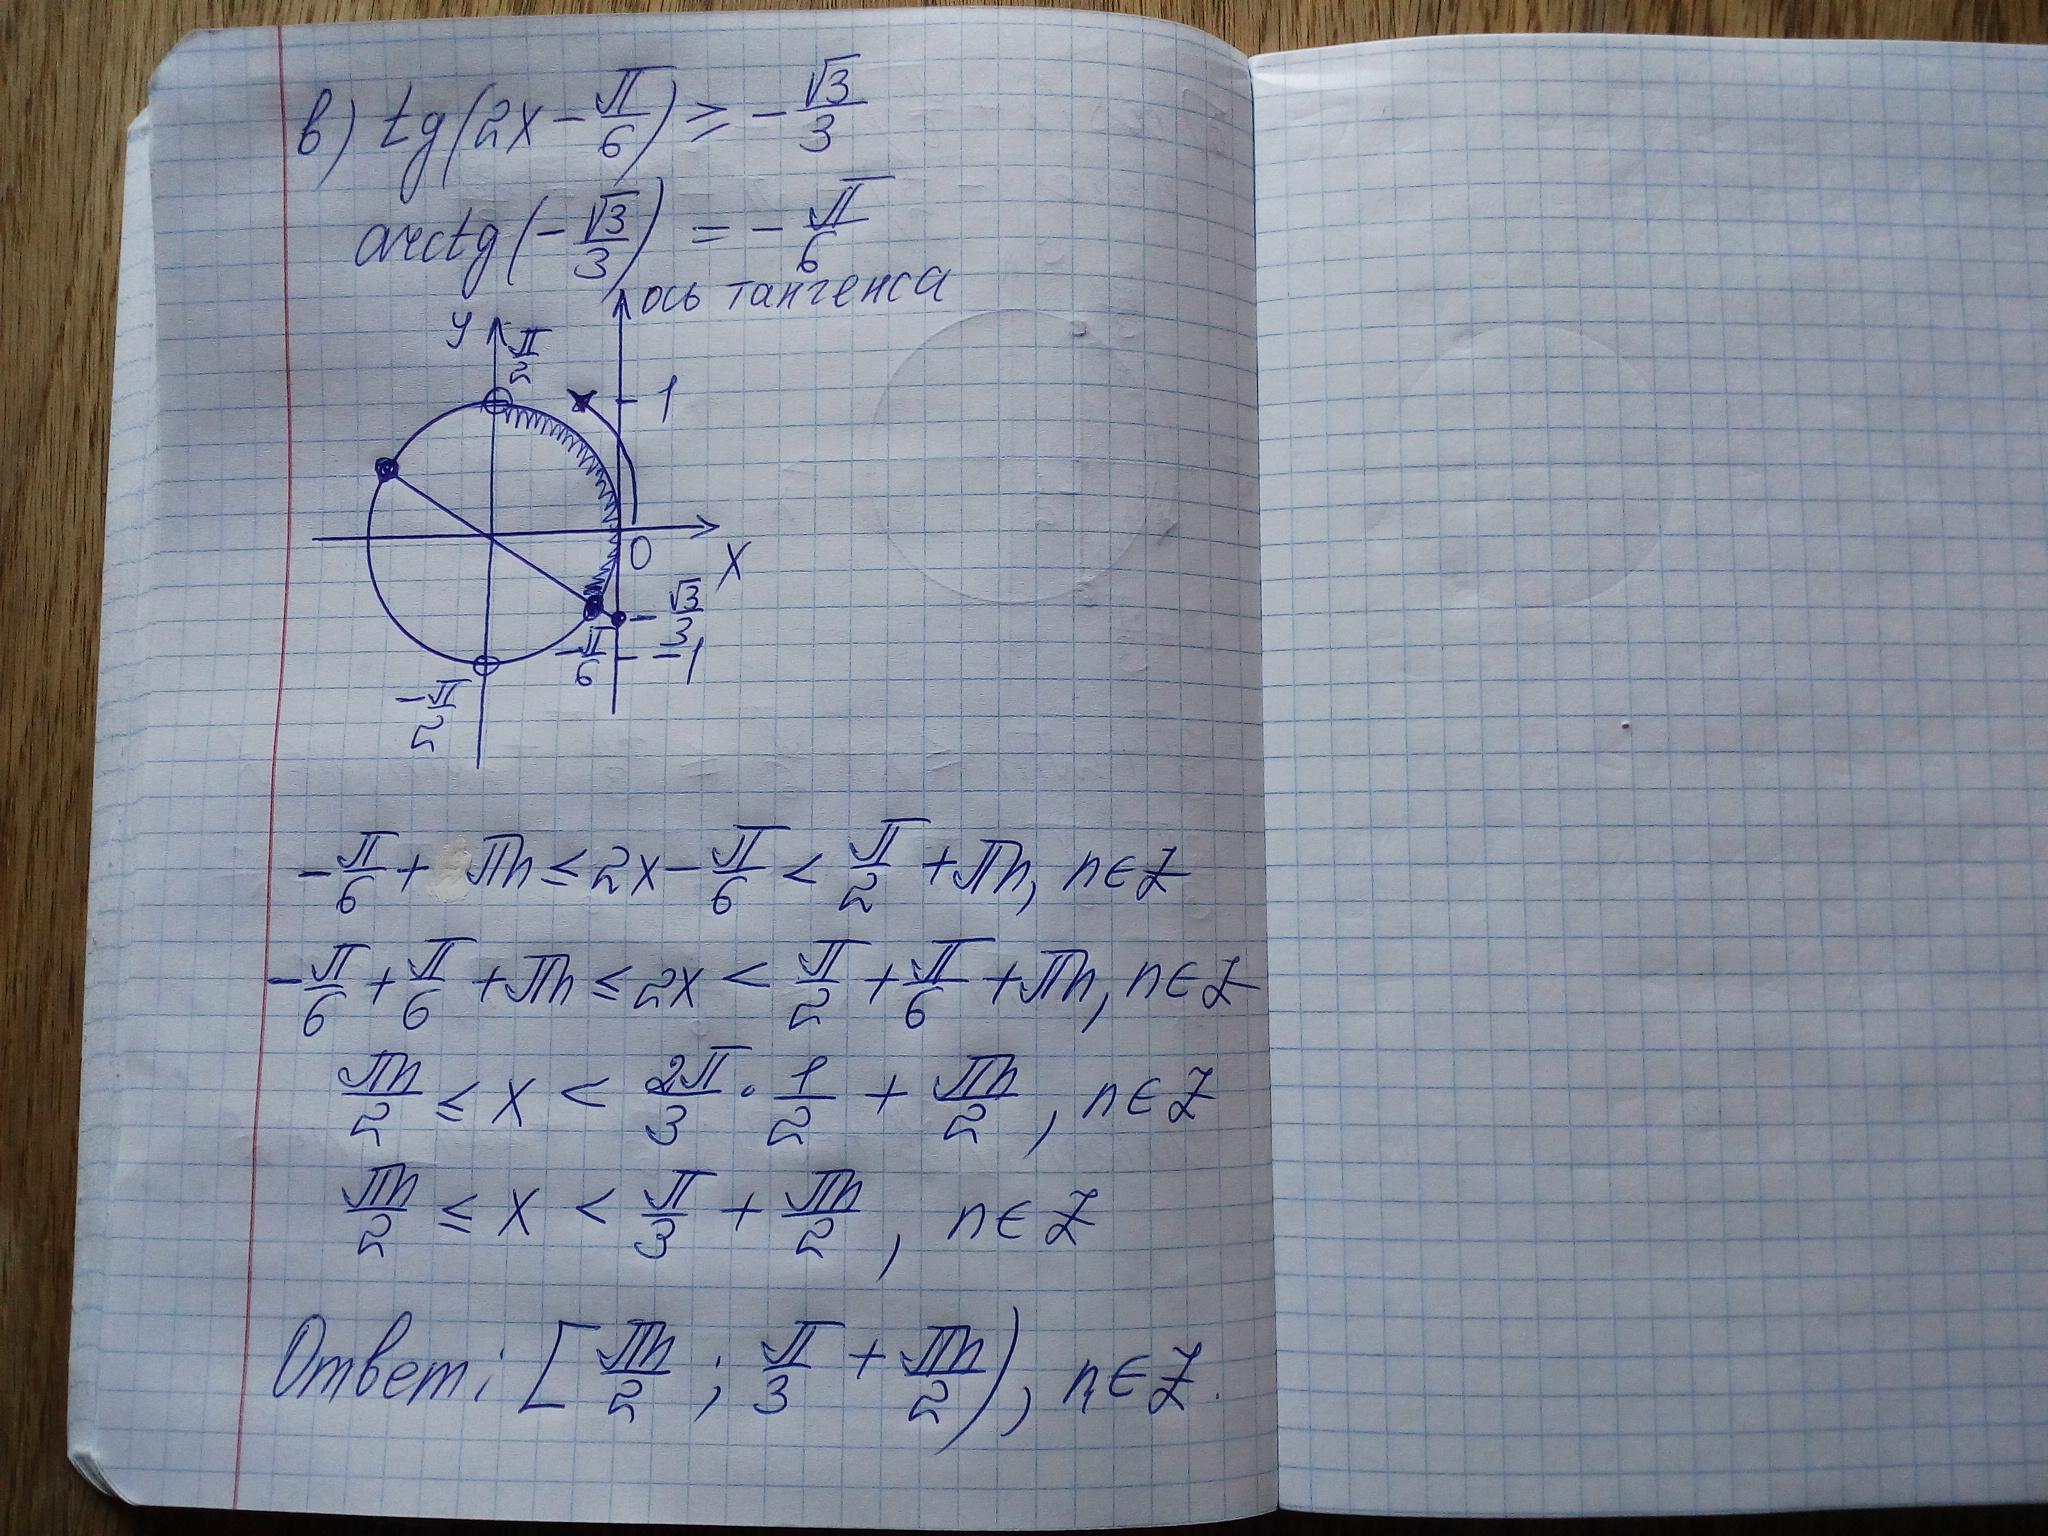 в) tg(2x - π/6) ≥ - √3/3
arctg(- √3/3) = - π/6
ось тангенса
y
π/2
1
0
x
- √3/3
- π/6
-1
- π/2
- π/6 + πn ≤ 2x - π/6 < π/2 + πn, n ∈ Z
- π/6 + π/6 + πn ≤ 2x < π/2 + π/6 + πn, n ∈ Z
πn/2 ≤ x < 2π/3 · 1/2 + πn/2, n ∈ Z
πn/2 ≤ x < π/3 + πn/2, n ∈ Z
Ответ: [πn/2; π/3 + πn/2), n ∈ Z.